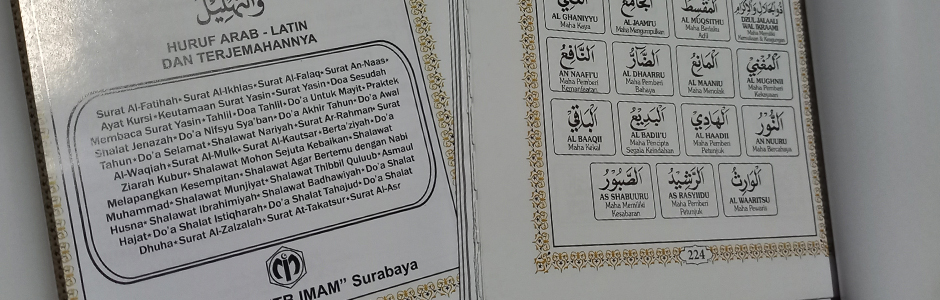 والتهليل
HURUF ARAB - LATIN
DAN TERJEMAHANNYA
Surat Al-Fatihah • Surat Al-Ikhlas • Surat Al-Falaq • Surat An-Naas •
Ayat Kursi • Keutamaan Surat Yasin • Surat Yasin • Doa Sesudah
Membaca Surat Yasin • Tahlil • Doa Tahlil • Do'a Untuk Mayit • Praktek
Shalat Jenazah • Do'a Nifsyu Sya'ban • Do'a Akhir Tahun • Do'a Awal
Tahun • Do'a Selamat • Shalawat Nariyah • Surat Ar-Rahman • Surat
Al-Waqiah • Surat Al-Mulk • Surat Al-Kautsar • Berta'ziyah • Do'a
Ziarah Kubur • Shalawat Mohon Sejuta Kebaikan • Shalawat
Melapangkan Kesempitan • Shalawat Agar Bertemu dengan Nabi
Muhammad • Shalawat Munjiyat • Shalawat Thibbil Qulub • Asmaul
Husna • Shalawat Ibrahimiyah • Shalawat Badhawiyah • Do'a Shalat
Hajat • Do'a Shalat Istiqharah • Do'a Shalat Tahajud • Do'a Shalat
Dhuha • Surat Al-Zalzalah • Surat At-Takatsur • Surat Al-Asr
IMAM" Surabaya
ذوالجلال والإكرام
DZUL JALAALI
WAL IKRAAMI
Maha Memiliki
Kemuliaan & Keagungan
المقسط
AL MUQSITHU
Maha Berlaku
Adil
الجامع
AL JAAMI'U
Maha Mengumpulkan
الغني
AL GHANIYYU
Maha Kaya
المغني
AL MUGHNII
Maha Pemberi
Kekayaan
المانع
AL MAANIU
Maha Menolak
الضار
AL DHAARRU
Maha Pemberi
Bahaya
النافع
AN NAAFI'U
Maha Pemberi
Kemanfaatan
النور
AN NUURU
Maha Bercahaya
الهادي
AL HAADII
Maha Pemberi
Petunjuk
البديع
AL BADII'U
Maha Pencipta
Segala Keindahan
الباقي
AL BAAQII
Maha Kekal
الوارث
AL WAARITSU
Maha Pewaris
الرشيد
AR RASYIIDU
Maha Pemberi
Petunjuk
الصبور
AS SHABUURU
Maha Memiliki
Kesabaran
224